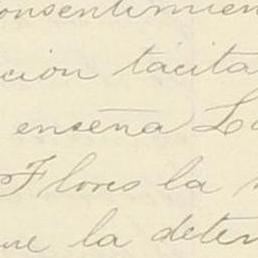 onsentimien
ción tácita
enseña La
Flores la
ue la deter